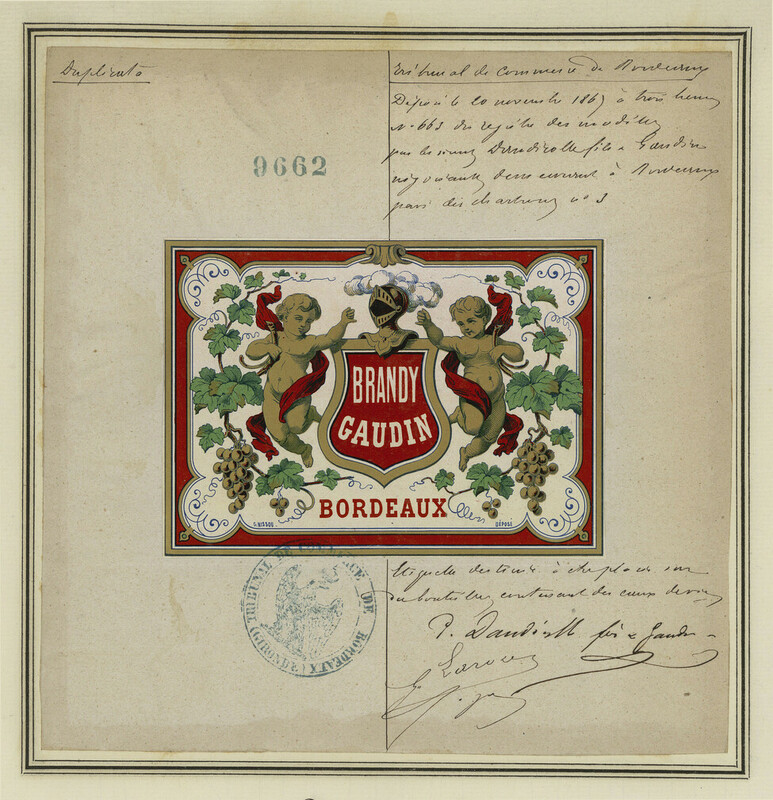 Duplicata
Tribunal de Commerce de Bordeaux
Déposé le 20 novembre 1867 à trois heures
N° 663 du registre des modèles
par les sieurs Dandicolle fils & Gaudin
négociants demeurant à Bordeaux
pavé des chartrons n° 3
9662
BRANDY
GAUDIN
BORDEAUX
DÉPOSÉ
TRIBUNAL DE COMMERCE DE BORDEAUX
(GIRONDE)
Etiquette destinée à être placée sur
des bouteilles contenant des eaux de vie
P. Dandicolle fils & Gaudin